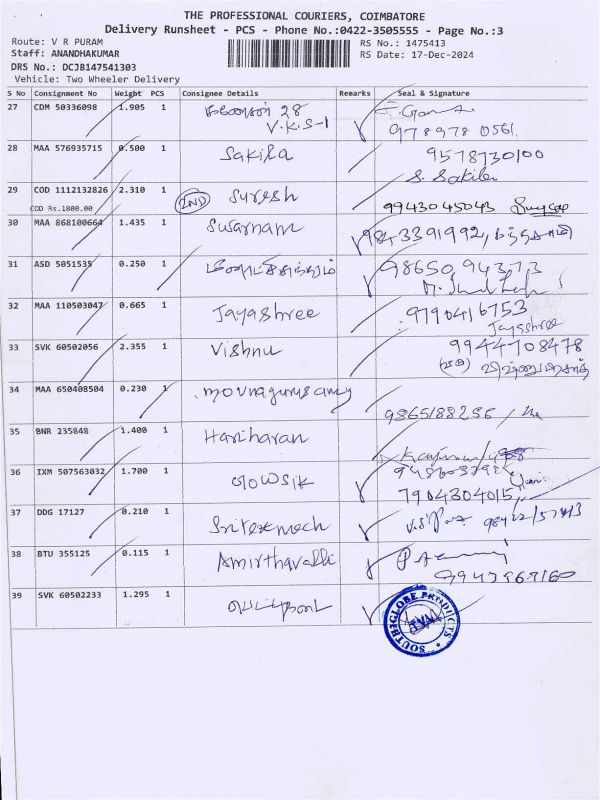 THE PROFESSIONAL COURIERS, COIMBATORE
Delivery Runsheet - PCS - Phone No.:0422-3505555 - Page No.:3
Route: V R PURAM
RS No.: 1475413
Staff: ANANDHAKUMAR
RS Date: 17-Dec-2024
DRS No.: DCJB147541303
Vehicle: Two Wheeler Delivery
S No Consignment No Weight PCS Consignee Details Remarks Seal & Signature
27 CDM 50336098 1.905 1 28
V.K.S-1
9789780561
28 MAA 576935715 0.500 1 Sakila 9578730100
S. Sakila
29 COD 1112132826 2.310 1 IND Suresh 9943045043
COD Rs.1800.00
30 MAA 868100664 1.435 1 Swarnam 9843391992,
31 ASD 5051535 0.250 1 9865094373
32 MAA 110503047 0.665 1 Jayashree 9790416753
Jayashree
33 SVK 60502056 2.355 1 Vishnu 9944708478
34 MAA 650408504 0.230 1 mounagurusamy
9865188256
35 BNR 235848 1.400 1 Hariharan
36 IXM 507563032 1.700 1 Gowsik
7904304015,
37 DDG 17127 0.210 1
38 BTU 355125 0.115 1 Amirthavalli
9943868160
39 SVK 60502233 1.295 1
SOUTH GLOBE PRODUCTS
TVM